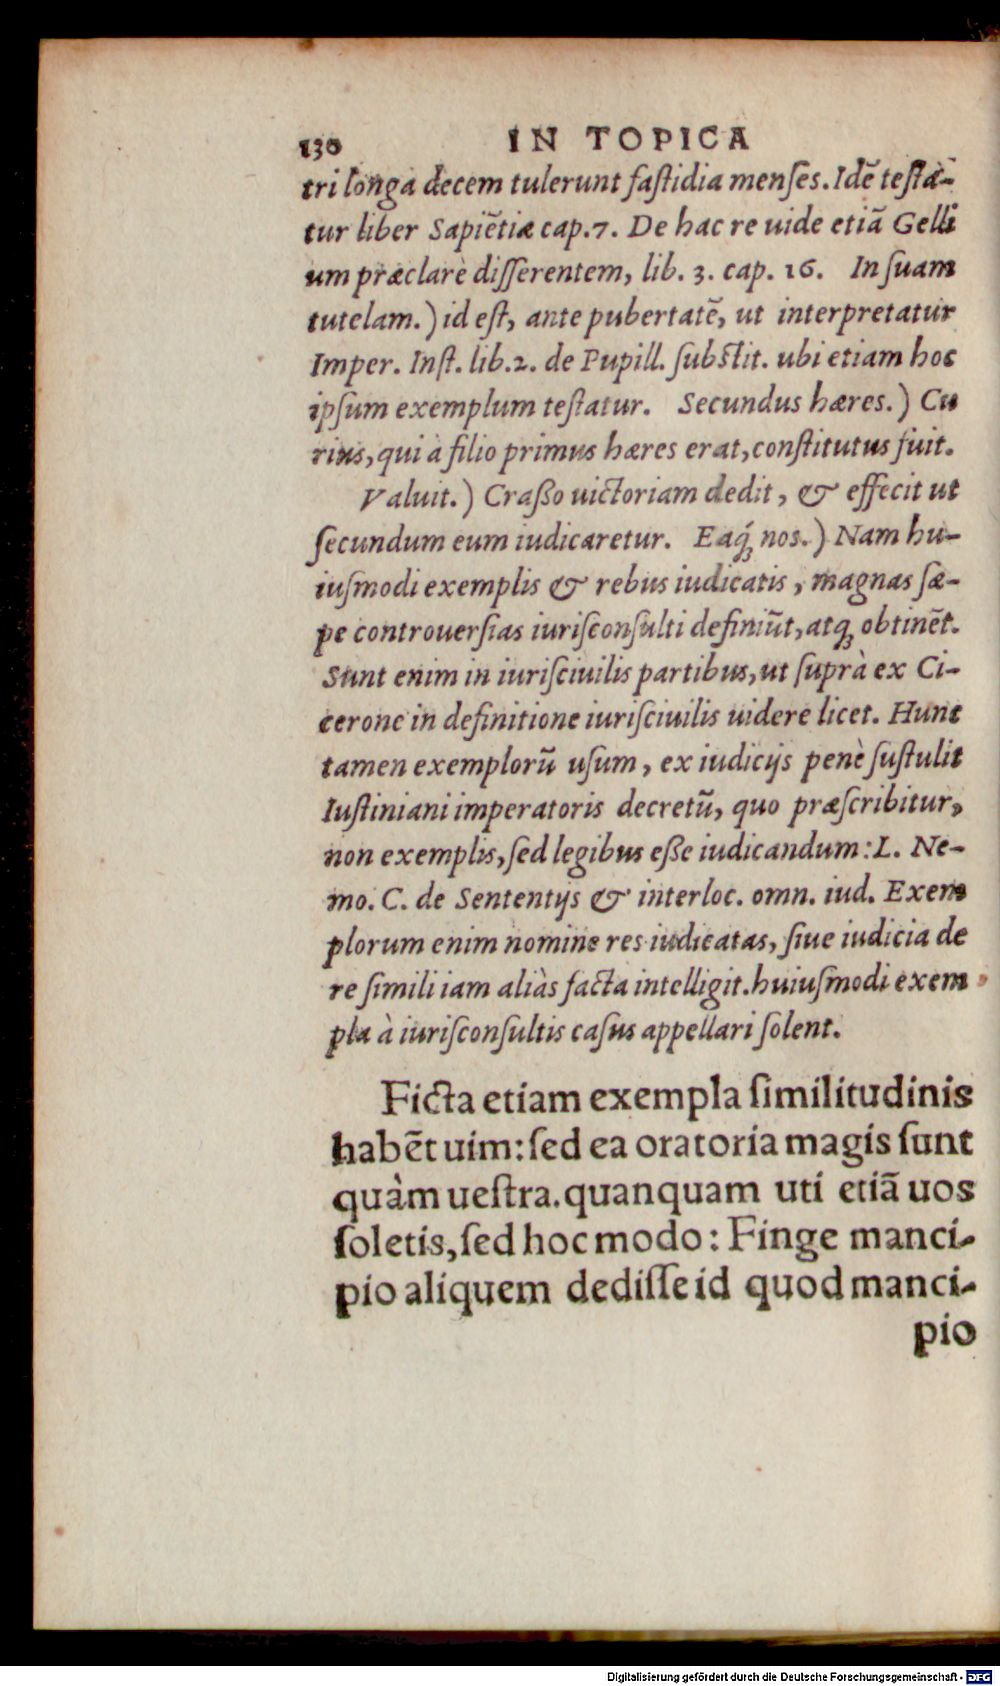 130 IN TOPICA
tri longa decem tulerunt fastidia menses. Idē testā-
tur liber Sapiētiæ cap.7. De hac re uide etiā Gelli
um præclarè differentem, lib. 3. cap. 16. In suam
tutelam.) id est, ante pubertatē, ut interpretatur
Imper. Inst. lib.2. de Pupill. substit. ubi etiam hoc
ipsum exemplum testatur. Secundus hæres.) Cu
rius, qui à filio primus hæres erat, constitutus fuit.
Valuit.) Crasso uictoriam dedit, & effecit ut
secundum eum iudicaretur. Eaq́ꝫ nos.) Nam hu-
iusmodi exemplis & rebus iudicatis, magnas sæ-
pe controuersias iurisconsulti definiūt, atqꝫ obtinēt.
Sunt enim in iurisciuilis partibus, ut suprà ex Ci-
cerone in definitione iurisciuilis uidere licet. Hunc
tamen exemplorū usum, ex iudicijs penè sustulit
Iustiniani imperatoris decretū, quo præscribitur,
non exemplis, sed legibus esse iudicandum: L. Ne-
mo. C. de Sententijs & interloc. omn. iud. Exem
plorum enim nomine res iudicatas, siue iudicia de
re simili iam aliàs facta intelligit. huiusmodi exem
pla à iurisconsultis casus appellari solent.
Ficta etiam exempla similitudinis
habēt uim: sed ea oratoria magis sunt
quàm uestra. quanquam uti etiā uos
soletis, sed hoc modo: Finge manci-
pio aliquem dedisse id quod manci-
pio
Digitalisierung gefördert durch die Deutsche Forschungsgemeinschaft - DFG